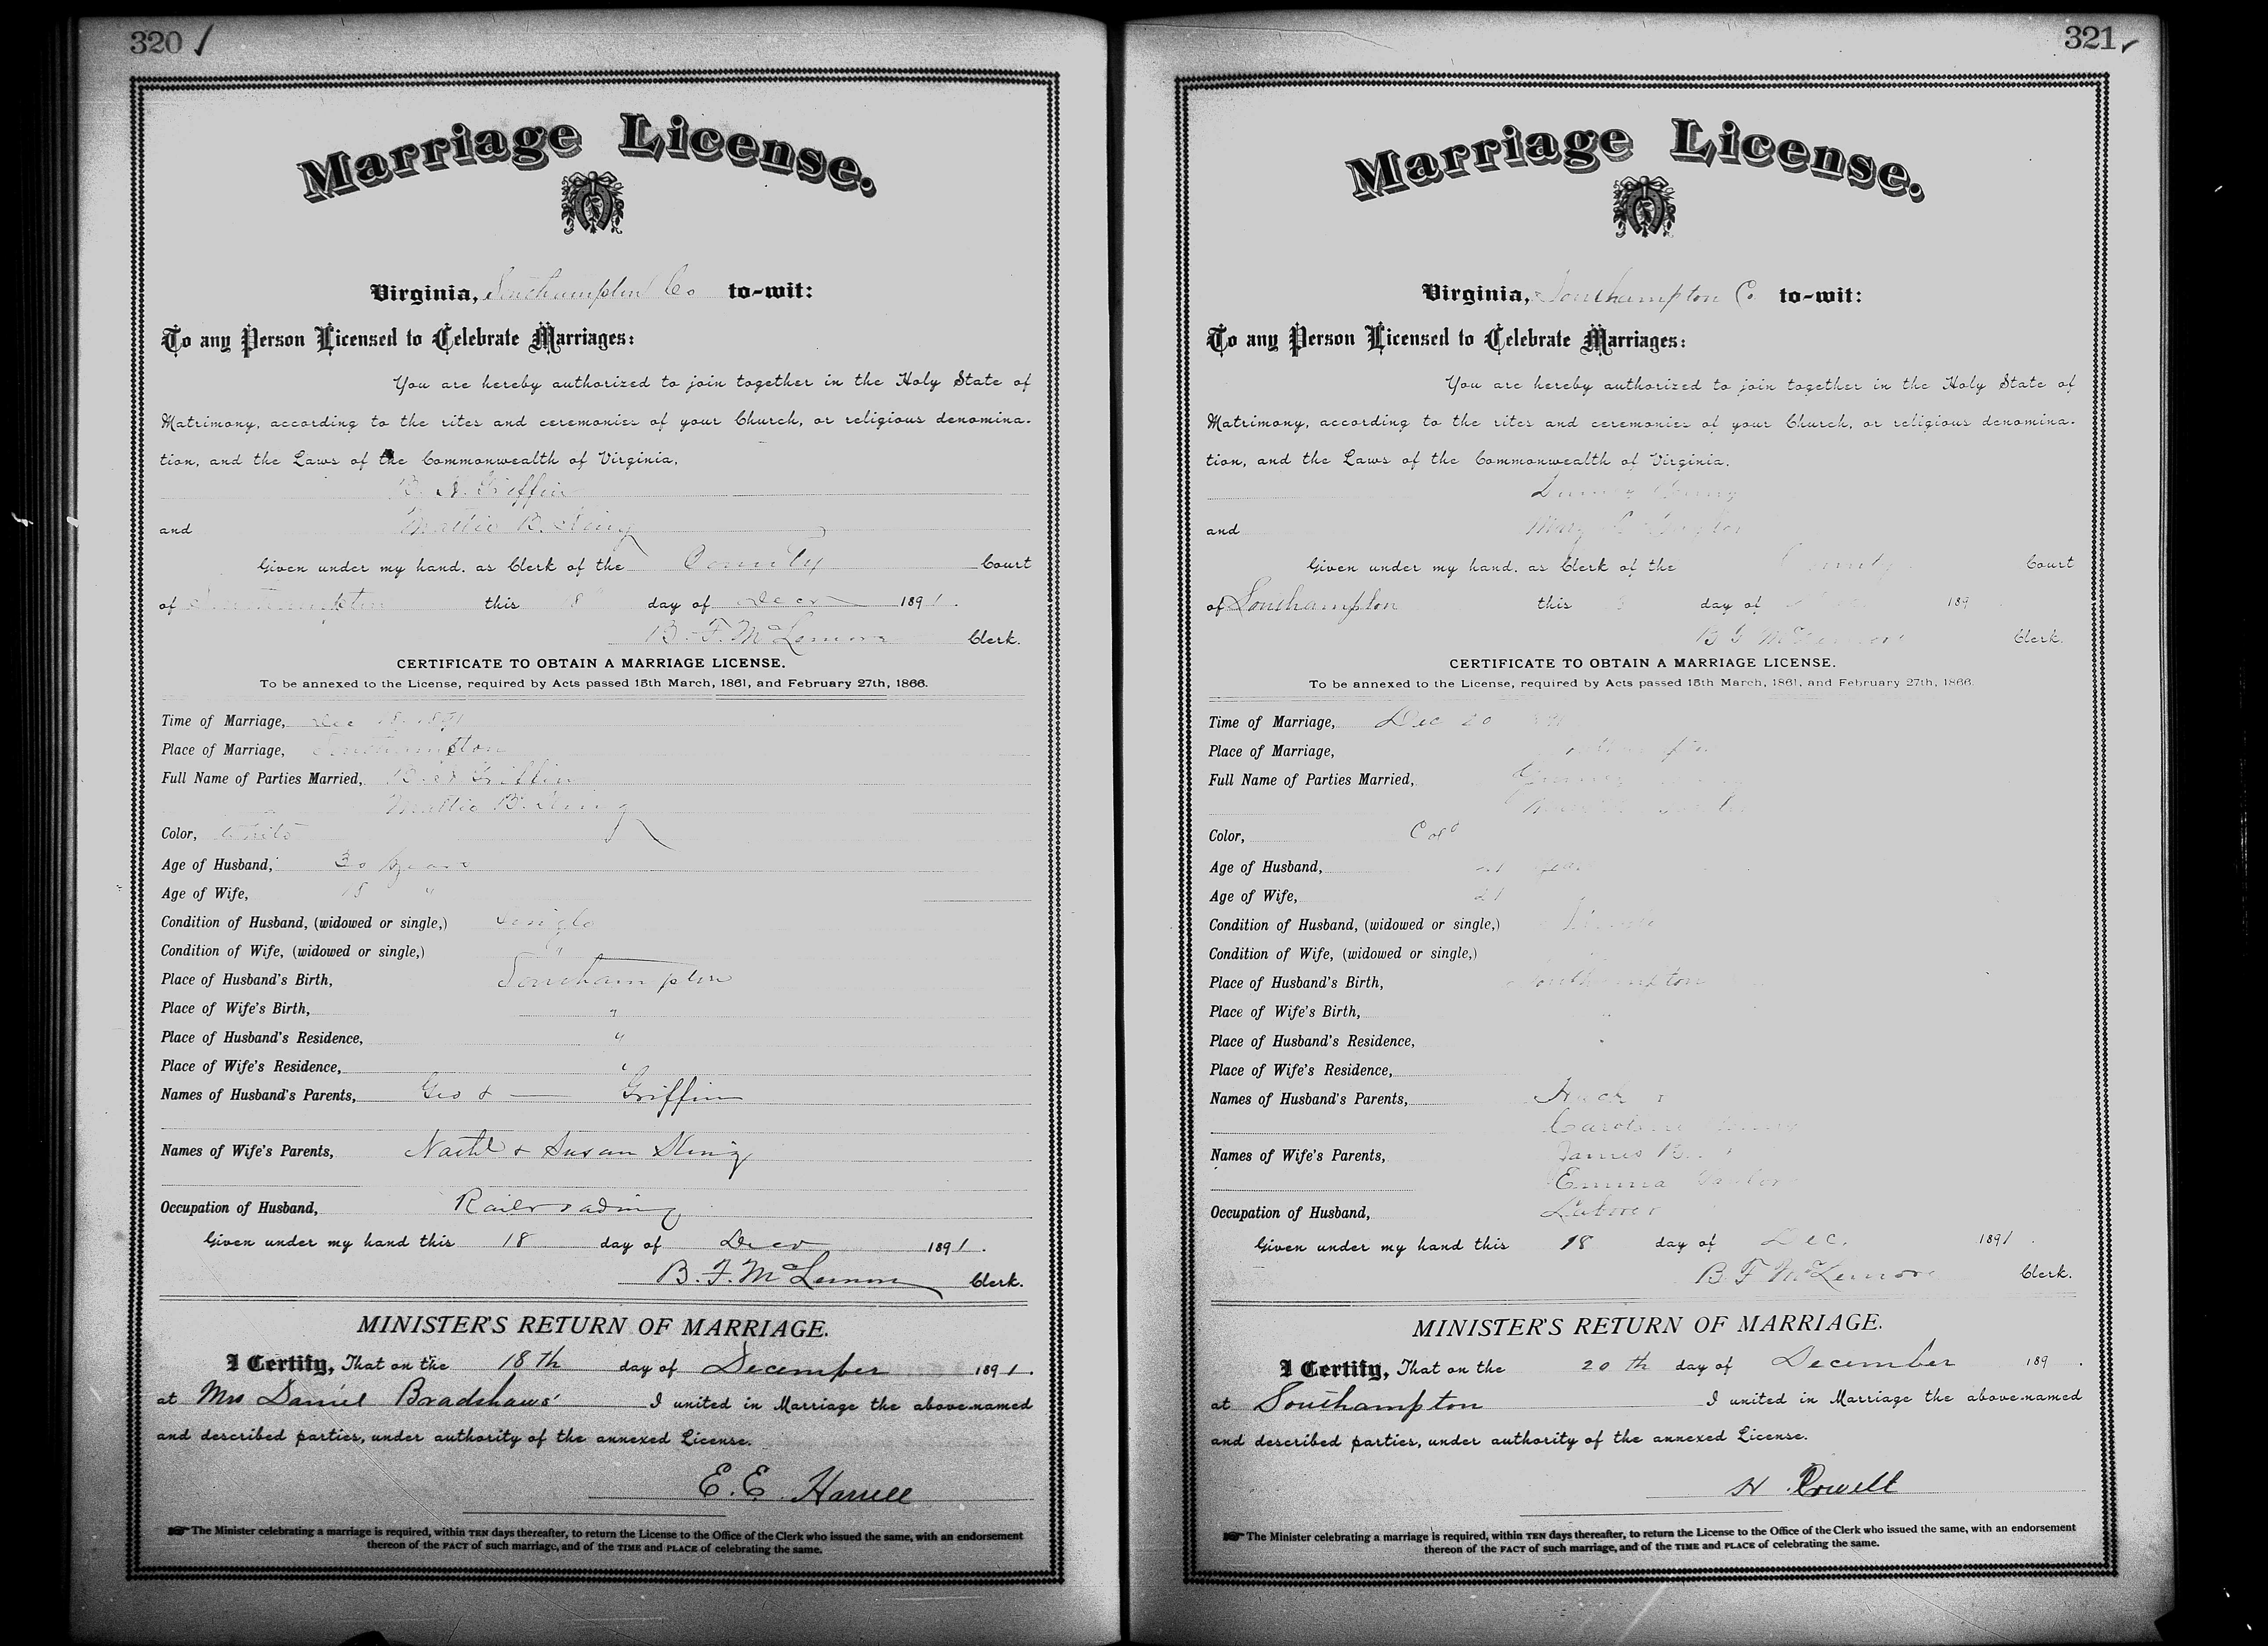 320
Marriage License.
Virginia, Southampton Co to-wit:
To any Person Licensed to Celebrate Marriages:
You are hereby authorized to join together in the Holy State of
Matrimony, according to the rites and ceremonies of your Church, or religious denomina-
tion, and the Laws of the Commonwealth of Virginia,
Griffin
and Mattie B.
Given under my hand, as Clerk of the County Court
of Southampton this 18 day of Decr 1891.
B. F. McLemore Clerk.
CERTIFICATE TO OBTAIN A MARRIAGE LICENSE.
To be annexed to the License, required by Acts passed 15th March, 1861, and February 27th, 1866.
Time of Marriage, Dec 18, 1891
Place of Marriage, Southampton
Full Name of Parties Married, Griffin
Mattie B.
Color, White
Age of Husband, 30 years
Age of Wife, 18 "
Condition of Husband, (widowed or single,) Single
Condition of Wife, (widowed or single,) "
Place of Husband's Birth, Southampton
Place of Wife's Birth, "
Place of Husband's Residence, "
Place of Wife's Residence, "
Names of Husband's Parents, Geo & — Griffin
Names of Wife's Parents, & Susan
Occupation of Husband, Railroading
Given under my hand this 18 day of Decr 1891.
B. F. McLemore Clerk.
MINISTER'S RETURN OF MARRIAGE.
I Certify, That on the 18th day of December 1891.
at Mrs Daniel Bradshaws' I united in Marriage the above-named
and described parties, under authority of the annexed License.
E. E. Harrell
The Minister celebrating a marriage is required, within TEN days thereafter, to return the License to the Office of the Clerk who issued the same, with an endorsement
thereon of the FACT of such marriage, and of the TIME and PLACE of celebrating the same.
321
Marriage License.
Virginia, Southampton Co to-wit:
To any Person Licensed to Celebrate Marriages:
You are hereby authorized to join together in the Holy State of
Matrimony, according to the rites and ceremonies of your Church, or religious denomina-
tion, and the Laws of the Commonwealth of Virginia,
and Mary
Given under my hand, as Clerk of the County Court
of Southampton this day of 189
B F McLemore Clerk.
CERTIFICATE TO OBTAIN A MARRIAGE LICENSE.
To be annexed to the License, required by Acts passed 15th March, 1861, and February 27th, 1866.
Time of Marriage, Dec 20
Place of Marriage,
Full Name of Parties Married,
Color, Cold
Age of Husband,
Age of Wife, 21
Condition of Husband, (widowed or single,) Single
Condition of Wife, (widowed or single,)
Place of Husband's Birth, Southampton
Place of Wife's Birth, "
Place of Husband's Residence,
Place of Wife's Residence,
Names of Husband's Parents,
Caroline
Names of Wife's Parents, James
Emma Taylor
Occupation of Husband, Laborer
Given under my hand this 18 day of Dec. 1891.
B. F McLemore Clerk.
MINISTER'S RETURN OF MARRIAGE.
I Certify, That on the 20th day of December 189 .
at Southampton I united in Marriage the above-named
and described parties, under authority of the annexed License.
The Minister celebrating a marriage is required, within TEN days thereafter, to return the License to the Office of the Clerk who issued the same, with an endorsement
thereon of the FACT of such marriage, and of the TIME and PLACE of celebrating the same.